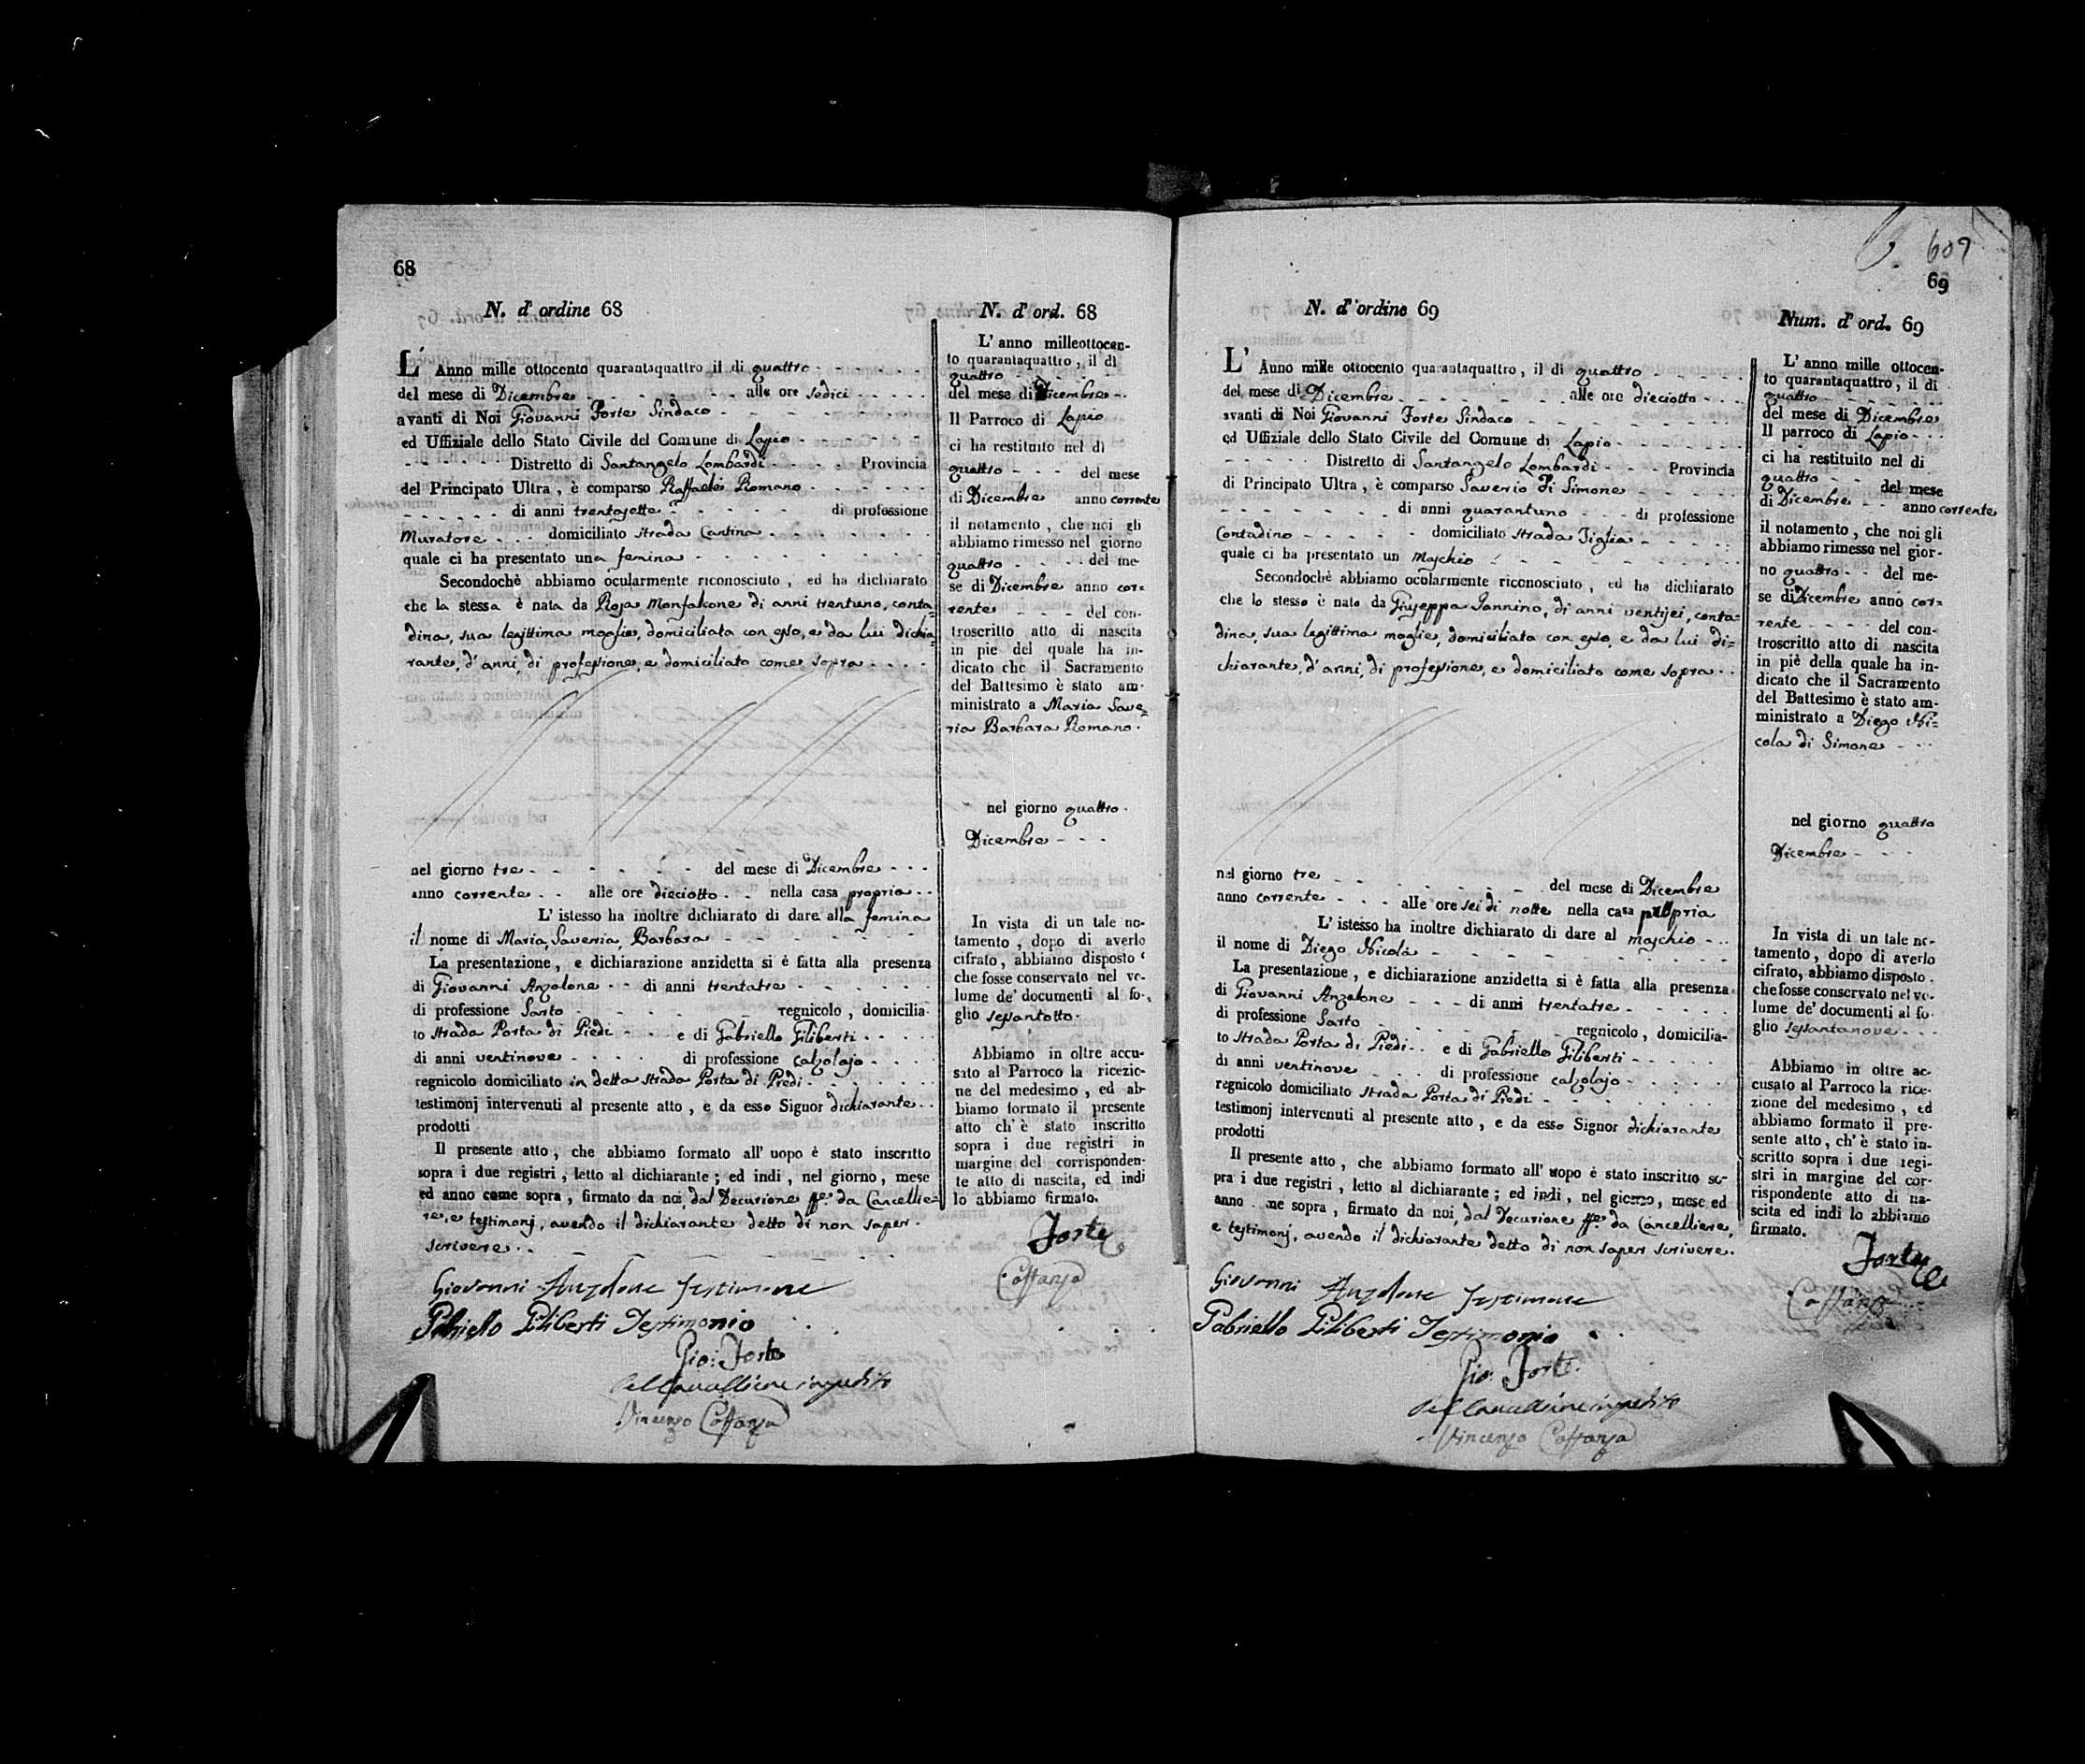 68
N. d' ordine 68
L' Anno mille ottocento quarantaquattro il di quattro
del mese di Dicembre alle ore sedici
avanti di Noi Giovanni Forte Sindaco
ed Uffiziale dello Stato Civile del Comune di Lapio
Distretto di Santangelo Lombardi Provincia
del Principato Ultra, è comparso Raffaele Romano
di anni trentasette di professione
Muratore domiciliato strada Cantina
quale ci ha presentato una femina
Secondochè abbiamo ocularmente riconosciuto, ed ha dichiarato
che la stessa è nata da Rosa Monfalcone di anni trentuno, conta=
dina, sua legittima moglie, domiciliata con esso, e da lui dichia=
rante, d' anni di professione, e domiciliato come sopra
nel giorno tre del mese di Dicembre
anno corrente alle ore dieciotto nella casa propria
L' istesso ha inoltre dichiarato di dare alla femina
il nome di Maria, Saveria, Barbara
La presentazione, e dichiarazione anzidetta si è fatta alla presenza
di Giovanni Anzolone di anni trentatre
di professione Sarto regnicolo, domicilia-
to strada Porta di Piedi e di Gabriello Giliberti
di anni ventinove di professione calzolajo
regnicolo domiciliato in detta strada Porta di Piedi
testimonj intervenuti al presente atto, e da esso Signor dichiarante
prodotti
Il presente atto, che abbiamo formato all' uopo è stato inscritto
sopra i due registri, letto al dichiarante; ed indi, nel giorno, mese
ed anno come sopra, firmato da noi, dal Decurione ff.e da Cancellie=
re, e testimonj, avendo il dichiarante detto di non saper
scrivere
Giovanni Anzolone Testimone
Gabriello Giliberti Testimonio
Gio: Forte
Pel Cancelliere impedito
Vincenzo Costanza
N. d' ord. 68
L' anno milleottocen-
to quarantaquattro, il dì
quattro
del mese di Dicembre
Il Parroco di Lapio
ci ha restituito nel dì
quattro del mese
di Dicembre anno corrente
il notamento, che noi gli
abbiamo rimesso nel giorno
quattro del me-
se di Dicembre anno cor=
rente del con-
troscritto atto di nascita
in piè del quale ha in-
dicato che il Sacramento
del Battesimo è stato am-
ministrato a Maria Save=
ria Barbara Romano.
nel giorno quattro
Dicembre
In vista di un tale no-
tamento, dopo di averlo
cifrato, abbiamo disposto
che fosse conservato nel vo-
lume de' documenti al fo-
glio sessantotto.
Abbiamo in oltre accu-
sato al Parroco la ricezio-
ne del medesimo, ed ab-
biamo formato il presente
atto ch' è stato inscritto
sopra i due registri in
margine del corrisponden-
te atto di nascita, ed indi
lo abbiamo firmato.
Forte
Costanza
607
69
N. d' ordine 69
L' Anno mille ottocento quarantaquattro, il di quattro
del mese di Dicembre alle ore dieciotto
avanti di Noi Giovanni Forte Sindaco
ed Uffiziale dello Stato Civile del Comune di Lapio
Distretto di Santangelo Lombardi Provincia
di Principato Ultra, è comparso Saverio di Simone
di anni quarantuno di professione
Contadino domiciliato strada Tiglia
quale ci ha presentato un maschio
Secondochè abbiamo ocularmente riconosciuto, ed ha dichiarato
che lo stesso è nato da Giuseppa Iannino, di anni ventisei, conta=
dina, sua legittima moglie, domiciliata con esso, e da lui di=
chiarante, d' anni, di professione, e domiciliato come sopra
nel giorno tre del mese di Dicembre
anno corrente alle ore sei di notte nella casa propria
L' istesso ha inoltre dichiarato di dare al maschio
il nome di Diego Nicola
La presentazione, e dichiarazione anzidetta si è fatta alla presenza
di Giovanni Anzolone di anni trentatre
di professione Sarto regnicolo, domicilia-
to strada Porta di Piedi e di Gabriello Giliberti
di anni ventinove di professione calzolajo
regnicolo domiciliato strada Porta di Piedi
testimonj intervenuti al presente atto, e da esso Signor dichiarante
prodotti
Il presente atto, che abbiamo formato all' uopo è stato inscritto so-
pra i due registri, letto al dichiarante; ed indi, nel giorno, mese ed
anno me sopra, firmato da noi, dal Decurione ff.e da Cancelliere,
e testimonj, avendo il dichiarante detto di non saper scrivere.
Giovanni Anzolone Testimone
Gabriello Giliberti Testimonio
Gio: Forte
Pel Cancelliere impedito
Vincenzo Costanza
Num. d' ord. 69
L' anno mille ottocen-
to quarantaquattro, il di
quattro
del mese di Dicembre
Il parroco di Lapio
ci ha restituito nel di
quattro del mese
di Dicembre anno corrente
il notamento, che noi gli
abbiamo rimesso nel gior-
no quattro del me-
se di Dicembre anno cor=
rente del con-
troscritto atto di nascita
in piè della quale ha in-
dicato che il Sacramento
del Battesimo è stato am-
ministrato a Diego Ni=
cola di Simone
nel giorno quattro
Dicembre
In vista di un tale no-
tamento, dopo di averlo
cifrato, abbiamo disposto
che fosse conservato nel vo-
lume de' documenti al fo-
glio sessantanove
Abbiamo in oltre ac-
cusato al Parroco la rice-
zione del medesimo, ed
abbiamo formato il pre-
sente atto, ch' è stato in-
scritto sopra i due regi-
stri in margine del cor-
rispondente atto di na-
scita ed indi lo abbiamo
firmato.
Forte
Costanza